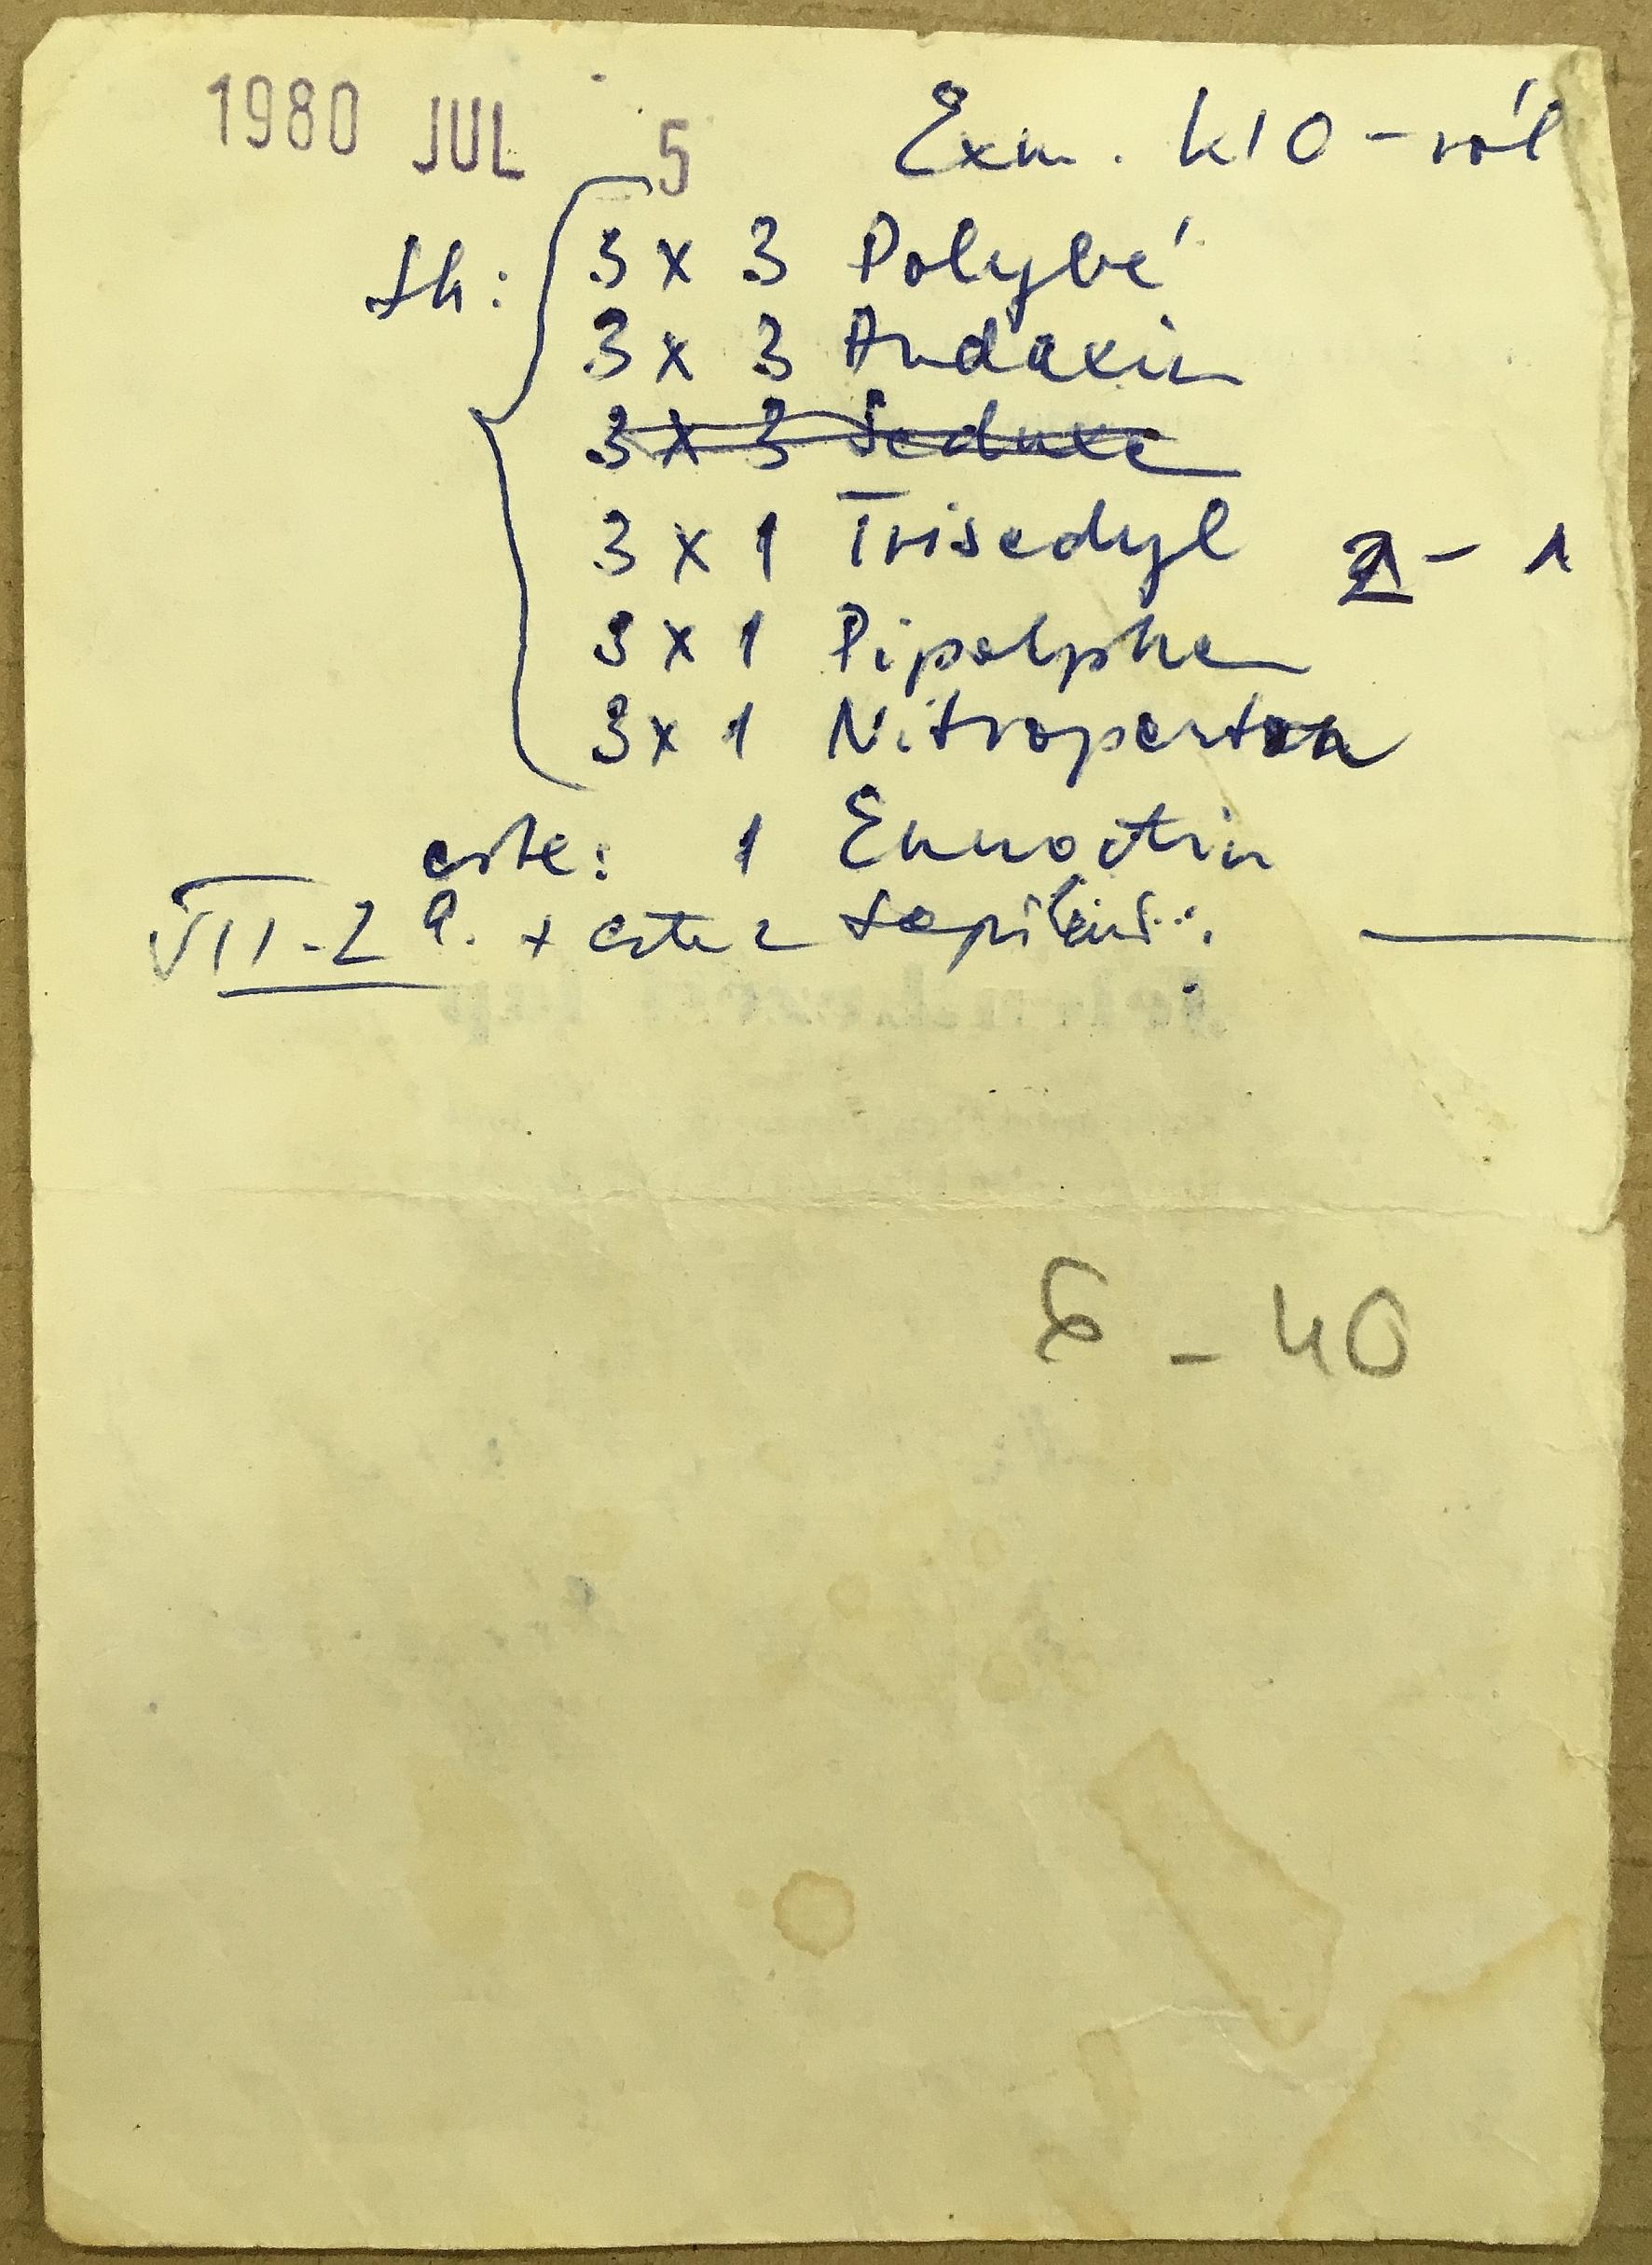 1980 JUL 5 Exm. K10-ról
th: 3 x 3 Polybé
3 x 3 Andaxin
3 x 3 Seduxe
3 x 1 Trisedyl - 1
3 x 1 Pipolphen
3 x 1 Nitroperton
este: 1 Eunoctin
VII-29. + este 2
6 - 40